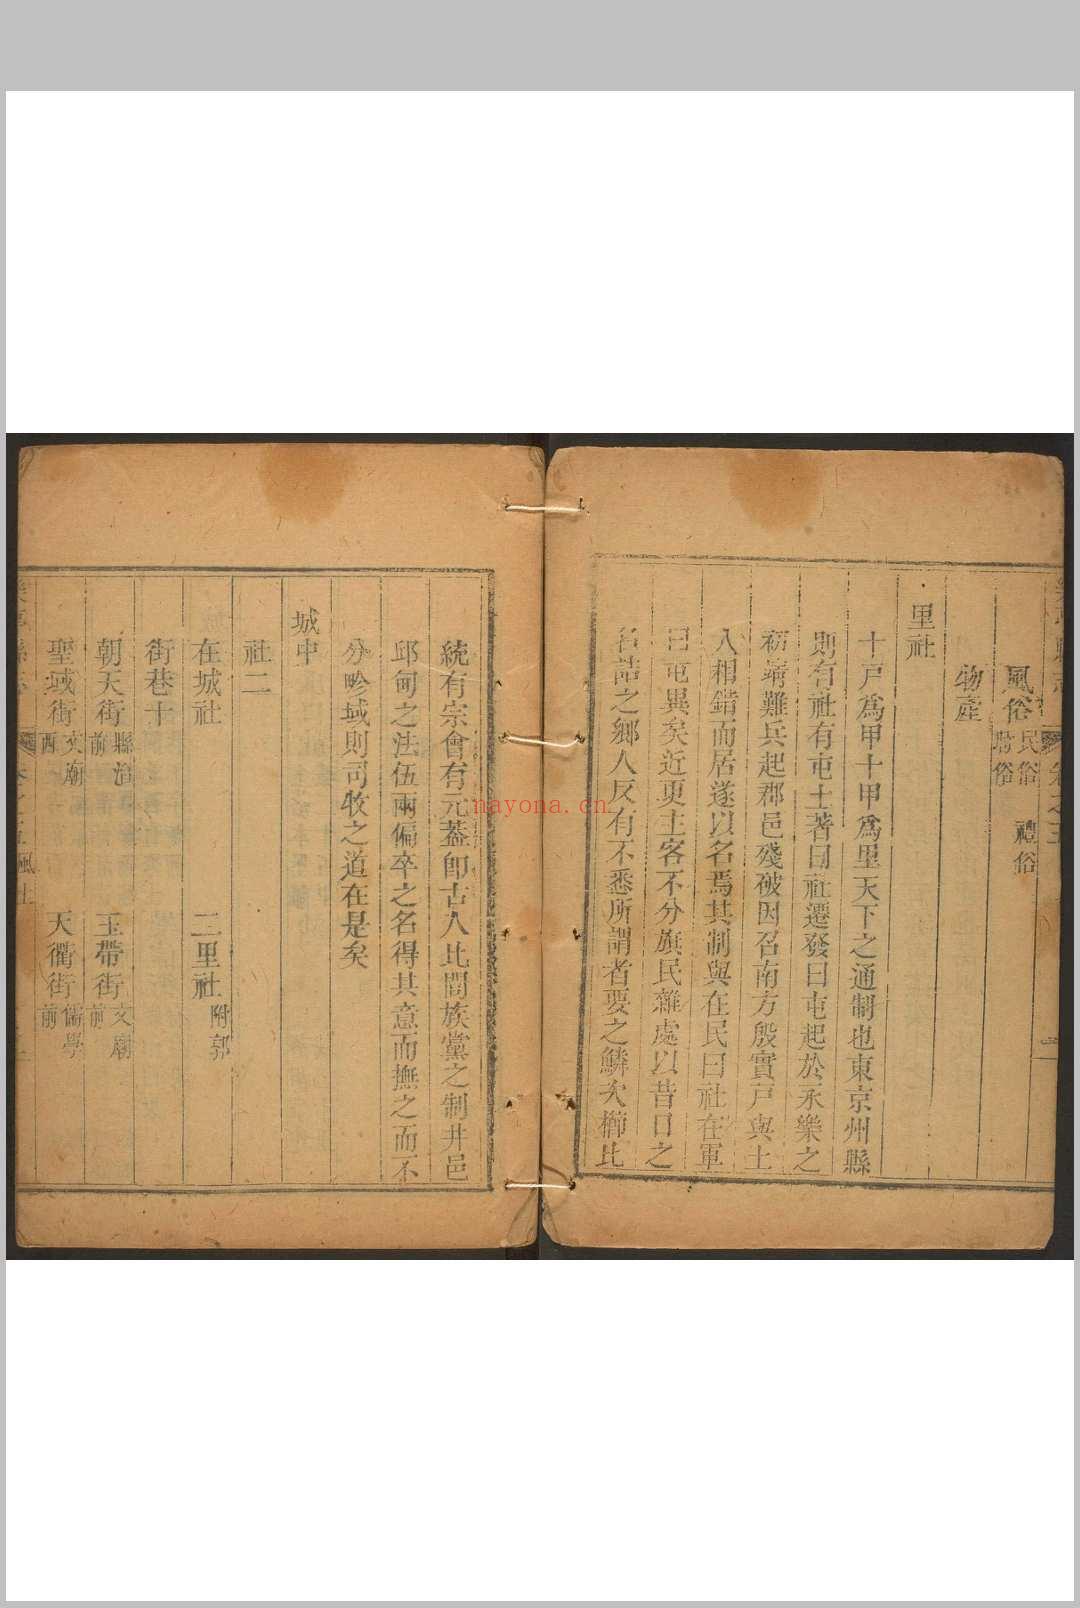 風俗 民俗 禮俗
物產
里社
十戸爲甲十甲爲里天下之通制也東京州縣
則有社有屯土著曰社遷發曰屯起於永樂之
初靖難兵起郡邑殘破因召南方殷實戸與土
人相錯而居遂以名焉其制與在民曰社在軍
曰屯異矣近更主客不分旗民雜處以昔日之
名詰之鄉人反有不悉所謂者要之鱗次櫛比
統有宗會有元蓋卽古人比閭族黨之制井邑
邱甸之法伍兩偏卒之名得其意而撫之而不
分畛域則司牧之道在是矣
城中
社二
在城社 二里社 附郭
街巷十
朝天街 縣治前 玉帶街 文廟前
聖域街 文廟西 天衢街 儒學前
nayona.cn